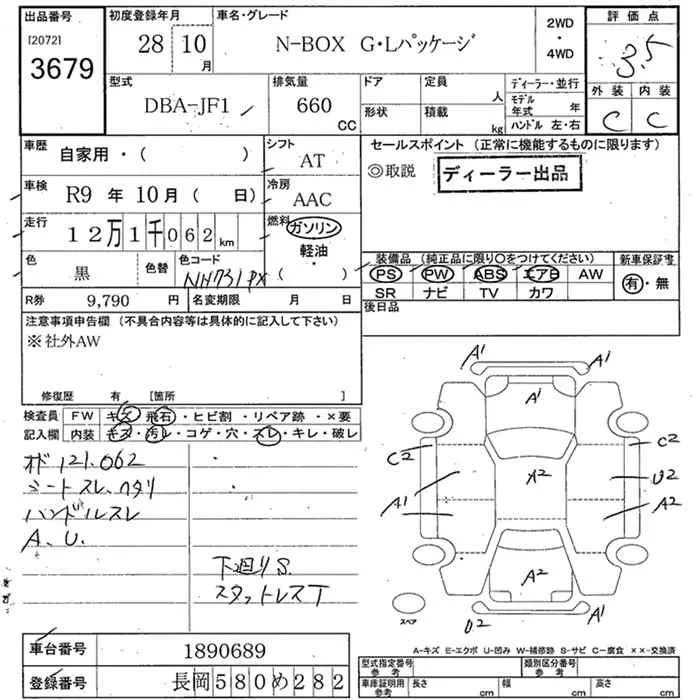 出品番号
[2072]
3679
初度登録年月
28 10月
車名・グレード
N-BOX G・Lパッケージ
2WD
・
4WD
評価点
3.5
外装 内装
C C
型式
DBA-JF1
排気量
660
CC
ドア
形状
定員
人
積載
kg
ディーラー・並行
モデル年式 年
ハンドル 左・右
車歴
自家用・( )
シフト
AT
車検
R9 年 10月 ( 日)
冷房
AAC
走行
12万1千062km
燃料
ガソリン
軽油
・
( )
色
黒
色替
色コード
NH731PX
R券 9,790 円
名変期限 月 日
セールスポイント (正常に機能するものに限ります)
◎取説
ディーラー出品
装備品 (純正品に限り○をつけてください)
新車保証書
PS PW ABS エアB AW
SR ナビ TV カワ
有・無
後日品
注意事項申告欄 (不具合内容等は具体的に記入して下さい)
※社外AW
修復歴 有 [箇所 ]
検査員記入欄
FW キズ・飛石・ヒビ割・リペア跡・×要
内装 キズ・汚レ・コゲ・穴・スレ・キレ・破レ
オド121.062
シートスレ、ヘタリ
ハンドルスレ
A、U.
下廻りS.
スタットレスT
A1 A1
A1
C2 C2
A2 U2
A1 A2
A2
U2 A1
スペア
A-キズ E-エクボ U-凹み W-補修跡 S-サビ C-腐食 ××-交換済
車台番号 1890689
登録番号 長岡580め282
型式指定番号
参考
類別区分番号
参考
車庫証明用
参考
長さ cm
幅 cm
高さ cm